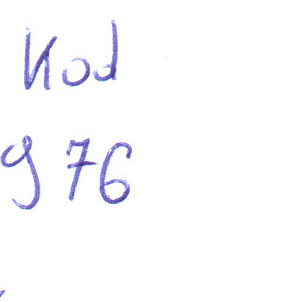 Kod
976